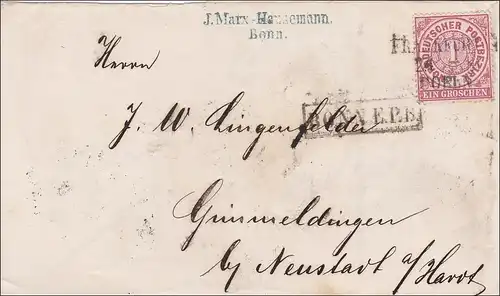 J. Marx-Hausemann.
Bonn.
NORDDEUTSCHER POSTBEZIRK
1
EIN GROSCHEN
BONN E.P.B.
Herrn
J. W. Lingenfelder
Gimmeldingen
by Neustadt a/Hardt